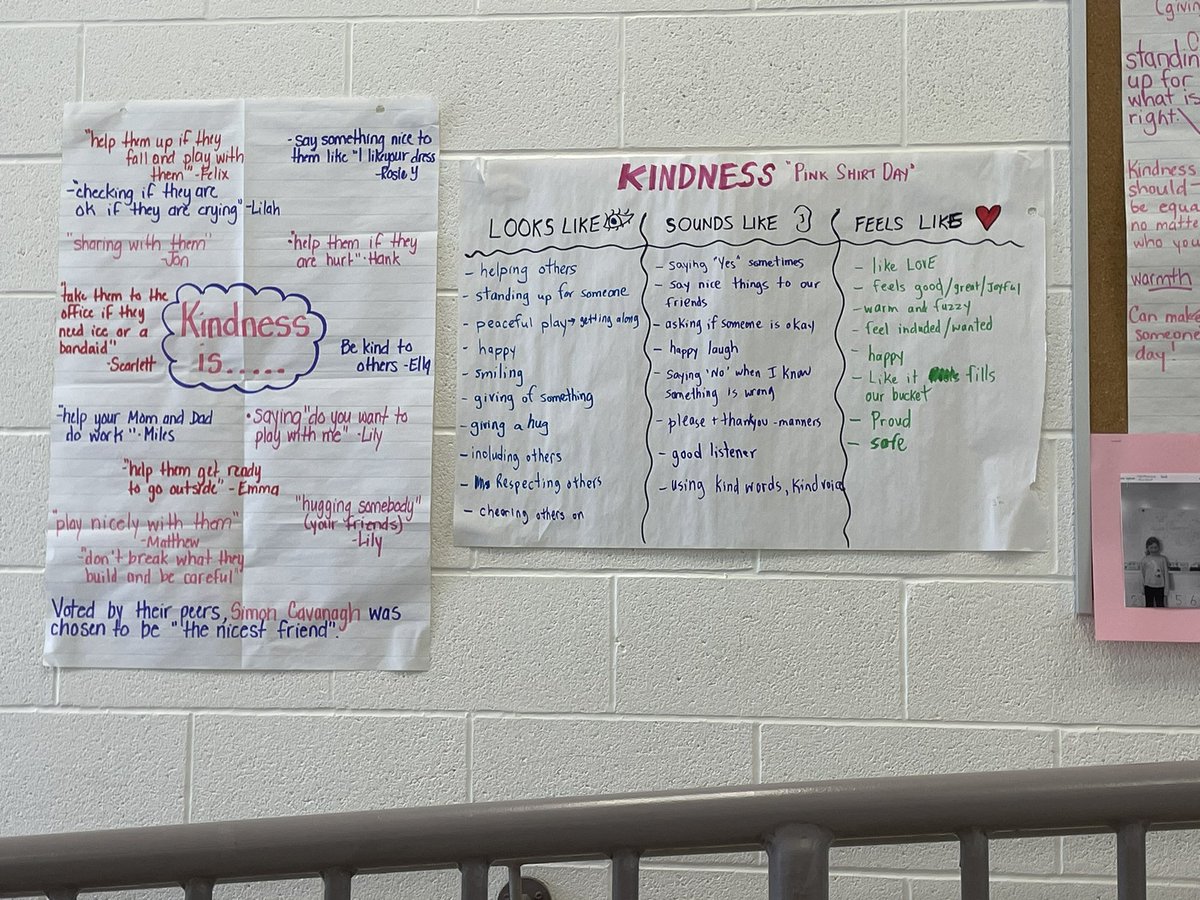 "help them up if they
fall and play with
them" -Felix
-say something nice to
them like "I like your dress
-Rosie Y
-"checking if they are
ok if they are crying" -Lilah
"sharing with them"
-Jon
•"help them if they
are hurt"-Hank
"take them to the
office if they
need ice or a
bandaid"
-Scarlett
Kindness
is.....
Be kind to
others -Ella
-"help your Mom and Dad
do work"-Miles
•saying "do you want to
play with me" -Lily
-"help them get ready
to go outside" -Emma
"hugging somebody"
(your friends)
-Lily
"play nicely with them"
-Matthew
-"don't break what they
build and be careful"
Voted by their peers, Simon Cavanagh was
chosen to be "the nicest friend".
KINDNESS "PINK SHIRT DAY"
LOOKS LIKE
- helping others
- standing up for someone
- peaceful play → getting along
- happy
- smiling
- giving of something
- giving a hug
- including others
- Respecting others
- cheering others on
SOUNDS LIKE
- saying "Yes" sometimes
- say nice things to our
friends
- asking if someone is okay
- happy laugh
- Saying 'No' when I know
something is wrong
- please + thankyou - manners
- good listener
- using kind words, kind voice
FEELS LIKE
- like LOVE
- feels good/great/Joyful
- warm and fuzzy
- feel included/wanted
- happy
- Like it fills
our bucket
- Proud
- safe
standing
up for
what is
right.
Kindness
should
be equal
no matter
who you
warmth
Can make
someone
day